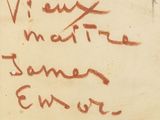 Vieux
maître
James
Ensor.